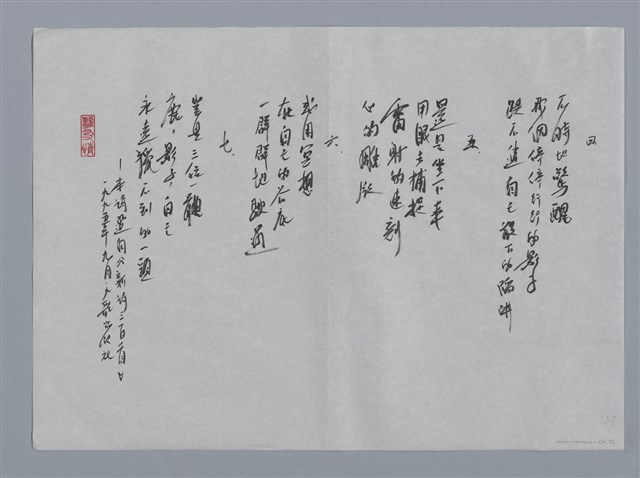 四
不時地驚醒
我們停停行行的影子
跌不進自己設下的陷阱
五、
還是坐下來
用眼去捕捉
雷射的速刻
心的雕版
六、
或用冥想
在自己的谷底
一群群地跑過
七、
豈是三位一體
鹿，影子，自己
永遠獵不到的一頭
—本詩選自《新詩三百首》
一九九五年九月，九歌出版社